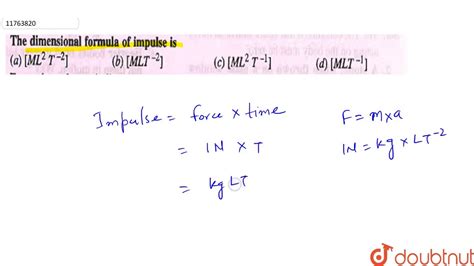 11763820
The dimensional formula of impulse is
(a) [ML² T⁻²] (b) [MLT⁻²] (c) [ML² T⁻¹] (d) [MLT⁻¹]
Impulse = force × time F = m×a
= 1N × T 1N = kg × LT⁻²
= kg LT
doubtnut